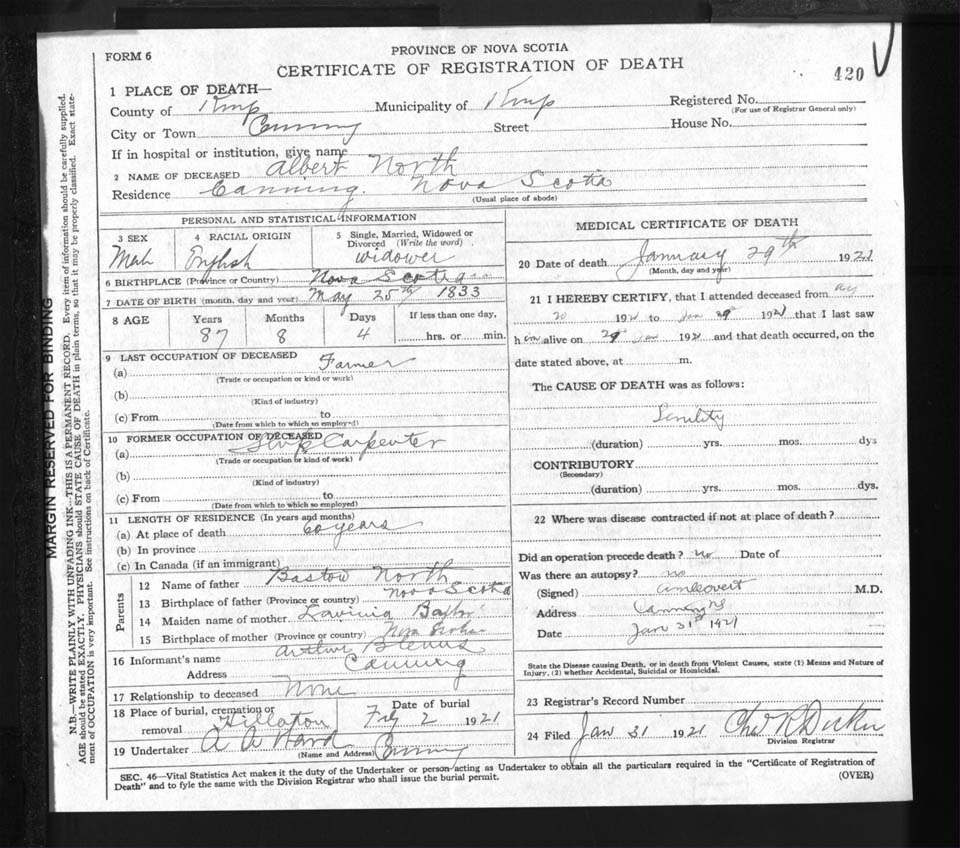 FORM 6
PROVINCE OF NOVA SCOTIA
CERTIFICATE OF REGISTRATION OF DEATH
420
1 PLACE OF DEATH—
County of Kings Municipality of Kings Registered No.
(For use of Registrar General only)
City or Town Canning Street House No.
If in hospital or institution, give name
2 NAME OF DECEASED Albert North
Residence Canning. Nova Scotia
(Usual place of abode)
PERSONAL AND STATISTICAL INFORMATION
3 SEX Male
4 RACIAL ORIGIN English
5 Single, Married, Widowed or Divorced (Write the word) widower
6 BIRTHPLACE (Province or Country) Nova Scotia
7 DATE OF BIRTH (month, day and year) May 25th 1833
8 AGE Years Months Days If less than one day,
87 8 4 hrs. or min.
9 LAST OCCUPATION OF DECEASED
(a) Farmer
(Trade or occupation or kind or work)
(b)
(Kind of industry)
(c) From to
(Date from which to which so employed)
10 FORMER OCCUPATION OF DECEASED
(a) Ship Carpenter
(Trade or occupation or kind of work)
(b)
(Kind of industry)
(c) From to
(Date from which to which so employed)
11 LENGTH OF RESIDENCE (In years and months)
(a) At place of death 60 years
(b) In province
(c) In Canada (if an immigrant)
Parents
12 Name of father Bastow North
13 Birthplace of father (Province or country) Nova Scotia
14 Maiden name of mother Lavinia
15 Birthplace of mother (Province or country) Nova Scotia
16 Informant's name Arthur
Address Canning
17 Relationship to deceased None
18 Place of burial, cremation or removal Hillaton Date of burial Feb 2 1921
19 Undertaker A A Ward Canning
(Name and Address)
MEDICAL CERTIFICATE OF DEATH
20 Date of death January 29th 1921
(Month, day and year)
21 I HEREBY CERTIFY, that I attended deceased from
20 1921 to Jan 29th 1921 that I last saw
him alive on 29 Jan 1921 and that death occurred, on the
date stated above, at m.
The CAUSE OF DEATH was as follows:
Senility
(duration) yrs. mos. dys
CONTRIBUTORY
(Secondary)
(duration) yrs. mos. dys.
22 Where was disease contracted if not at place of death?
Did an operation precede death? no Date of
Was there an autopsy? no
(Signed) M.D.
Address Canning NS
Date Jan 31st 1921
State the Disease causing Death, or in death from Violent Causes, state (1) Means and Nature of
Injury, (2) whether Accidental, Suicidal or Homicidal.
23 Registrar's Record Number
24 Filed Jan 31 1921 Chas R
Division Registrar
SEC. 46—Vital Statistics Act makes it the duty of the Undertaker or person acting as Undertaker to obtain all the particulars required in the "Certificate of Registration of
Death" and to fyle the same with the Division Registrar who shall issue the burial permit.
(OVER)
MARGIN RESERVED FOR BINDING
N.B.—WRITE PLAINLY WITH UNFADING INK—THIS IS A PERMANENT RECORD. Every item of information should be carefully supplied.
AGE should be stated EXACTLY. PHYSICIANS should STATE CAUSE OF DEATH in plain terms, so that it may be properly classified. Exact state-
ment of OCCUPATION is very important. See instructions on back of Certificate.